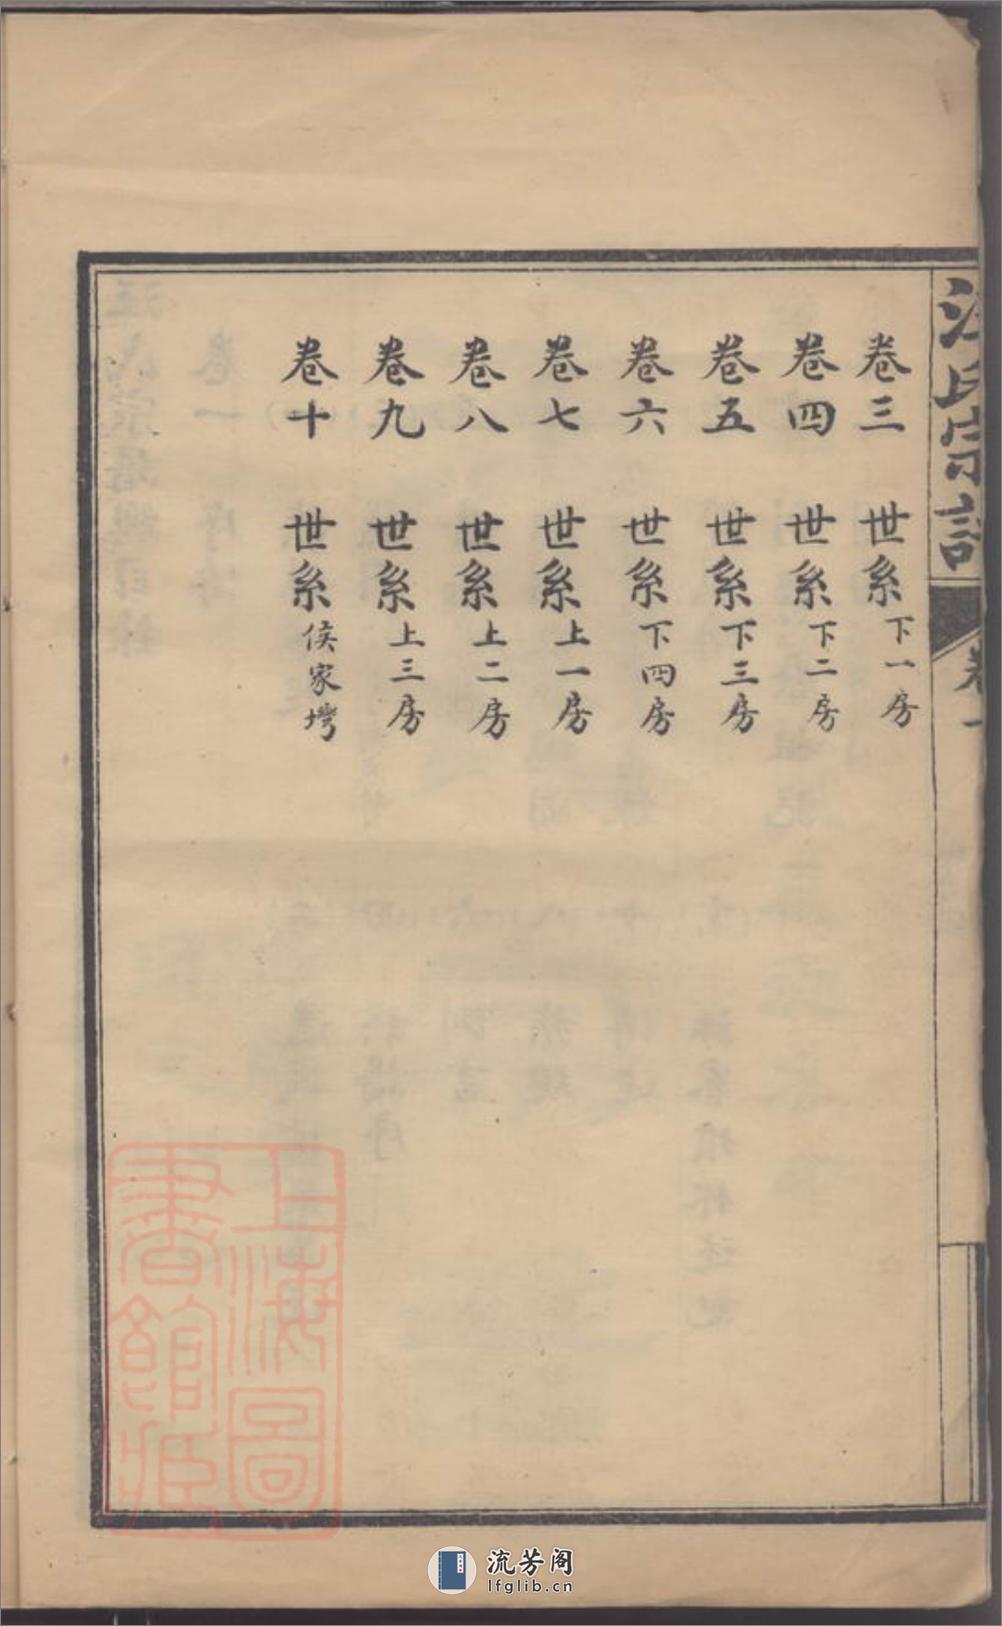 汪氏宗譜
卷一
卷三 世系 下一房
卷四 世系 下二房
卷五 世系 下三房
卷六 世系 下四房
卷七 世系 上一房
卷八 世系 上二房
卷九 世系 上三房
卷十 世系 侯家塆
上海圖
書館藏
流芳阁
lfglib.cn